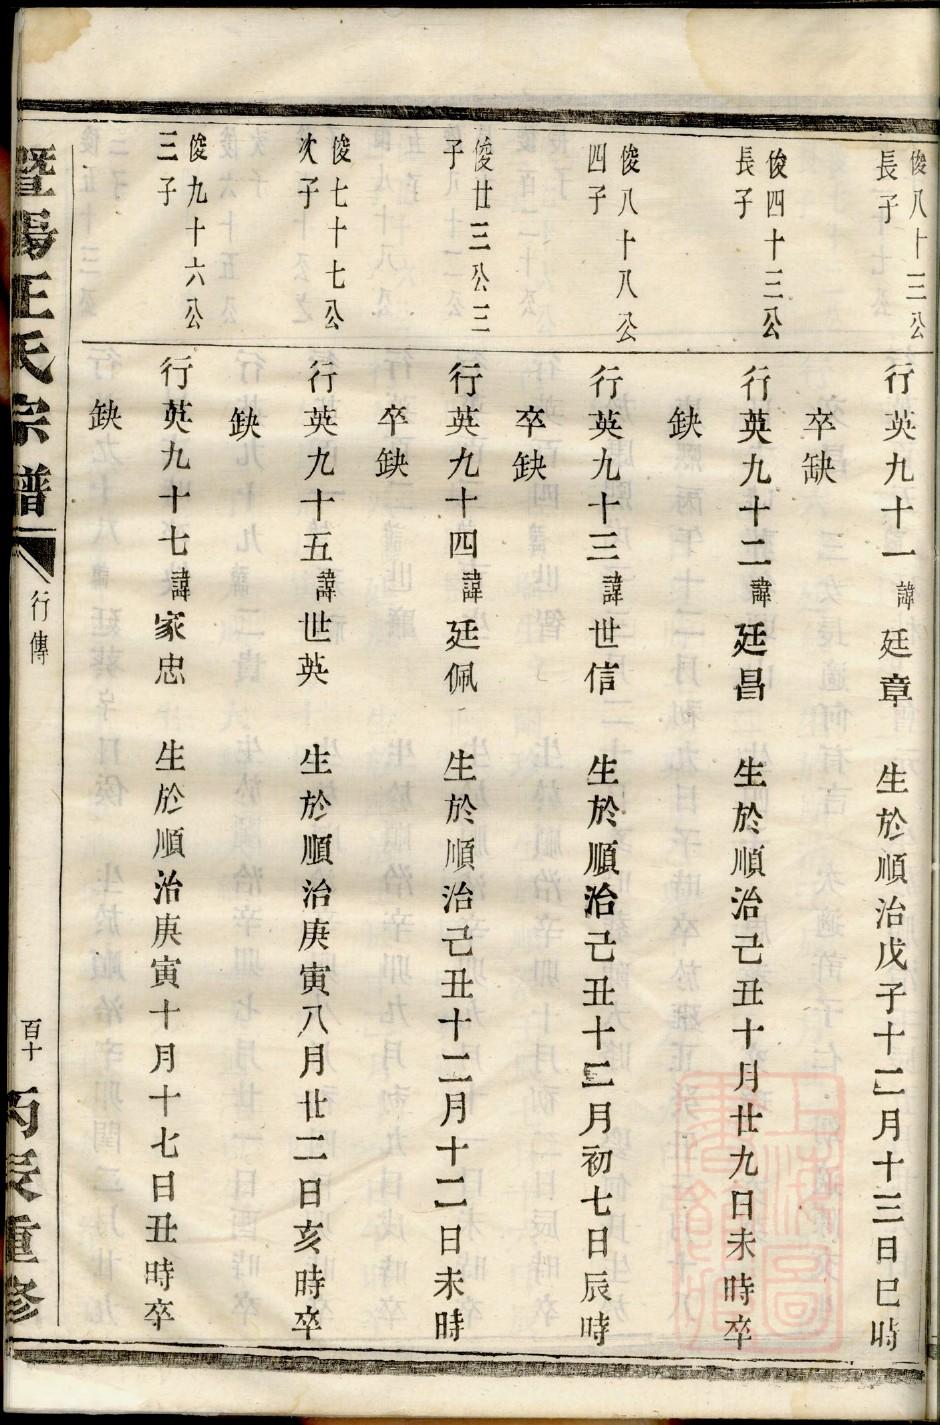 俊八十三公
長子
行英九十一諱廷章 生於順治戊子十二月十三日巳時
卒缺
俊四十三公
長子
行英九十二諱廷昌 生於順治己丑十月廿九日未時卒
缺
俊八十八公
四子
行英九十三諱世信 生於順治己丑十二月初七日辰時
卒缺
俊廿三公三
子
行英九十四諱廷佩 生於順治己丑十二月十二日未時
卒缺
俊七十七公
次子
行英九十五諱世英 生於順治庚寅八月廿二日亥時卒
缺
俊九十六公
三子
行英九十七諱家忠 生於順治庚寅十月十七日丑時卒
缺
暨陽王氏宗譜 行傳 百十 丙辰重修